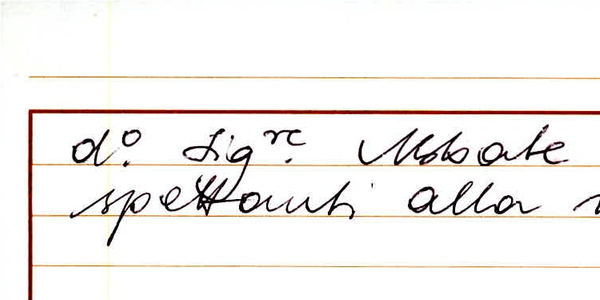 d.º Sig.re Abbate
spettanti alla